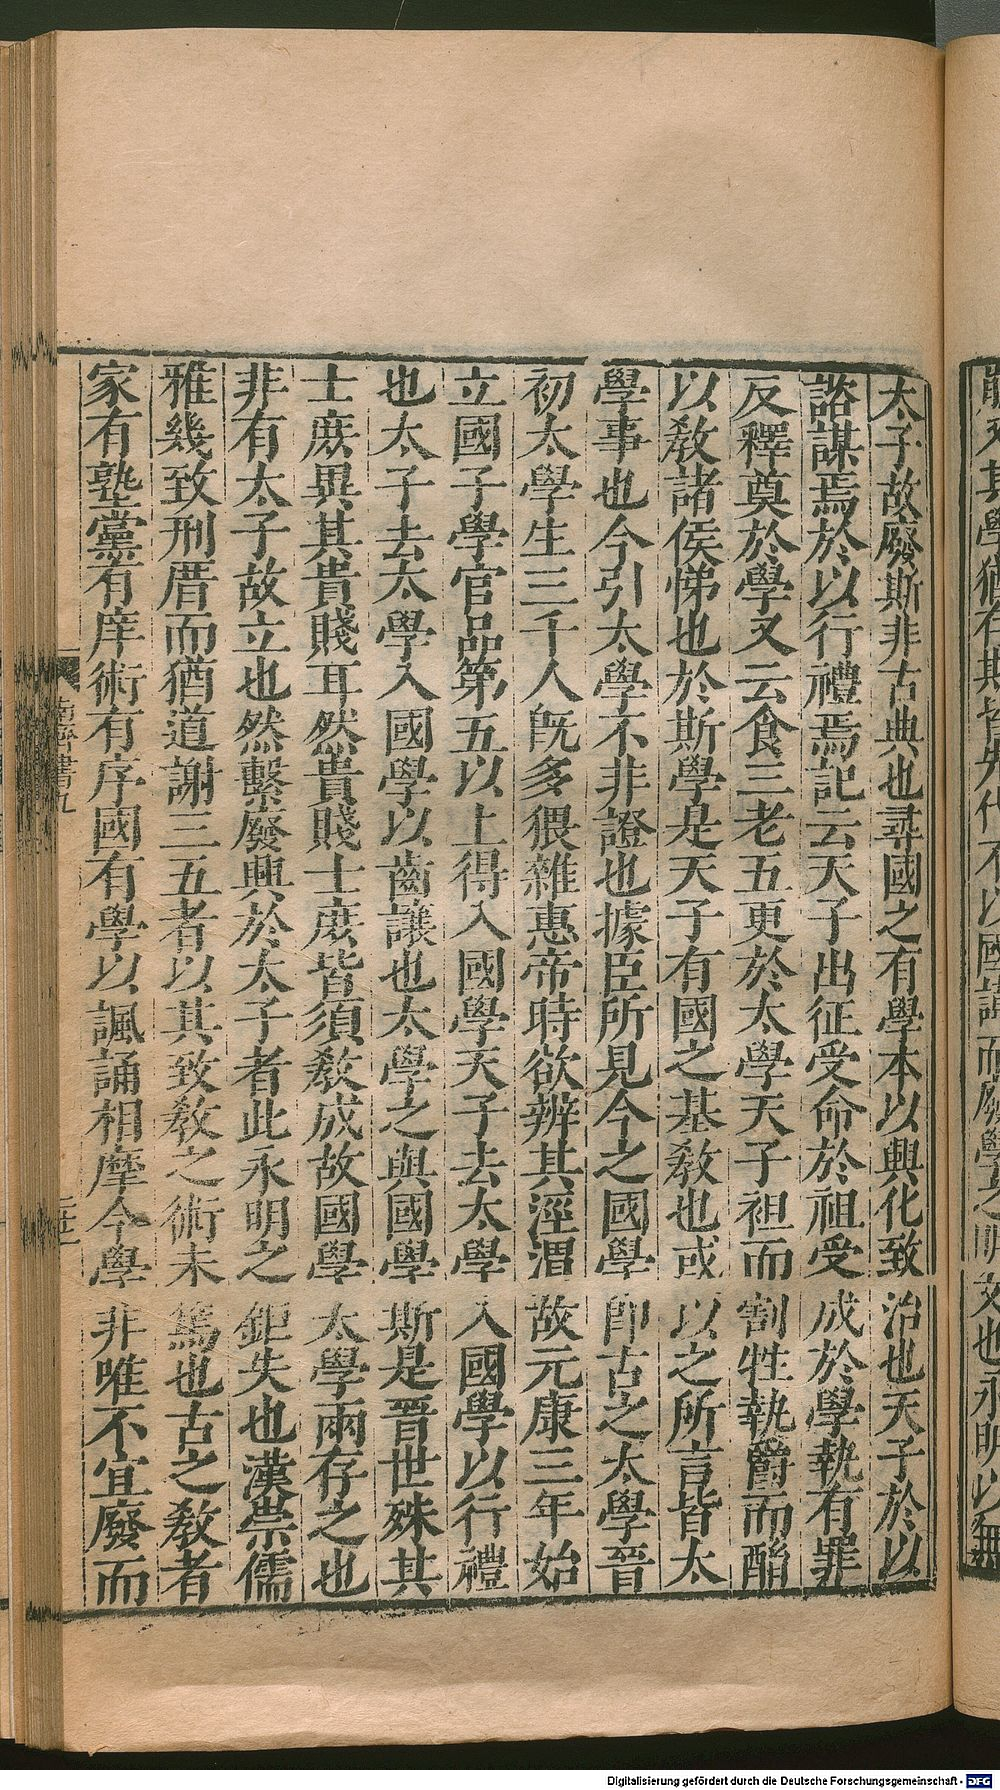 太子故廢斯非古典也尋國之有學本以興化致治也天子於以
諮謀焉於以行禮焉記云天子出征受命於祖受成於學執有罪
反釋奠於學又云食三老五更於太學天子袒而割牲執爵而酳
以敎諸侯悌也於斯學是天子有國之基敎也或以之所言皆太
學事也今引太學不非證也據臣所見今之國學卽古之太學晉
初太學生三千人旣多猥雜惠帝時欲辨其涇渭故元康三年始
立國子學官品第五以上得入國學天子去太學入國學以行禮
也太子去太學入國學以齒讓也太學之與國學斯是晉世殊其
士庶異其貴賤耳然貴賤士庶皆須敎成故國學太學兩存之也
非有太子故立也然繫廢興於太子者此永明之鉅失也漢崇儒
雅幾致刑厝而猶道謝三五者以其致敎之術未篤也古之敎者
家有塾黨有庠術有序國有學以諷誦相摩今學非唯不宜廢而
南齊書九
Digitalisierung gefördert durch die Deutsche Forschungsgemeinschaft - DFG